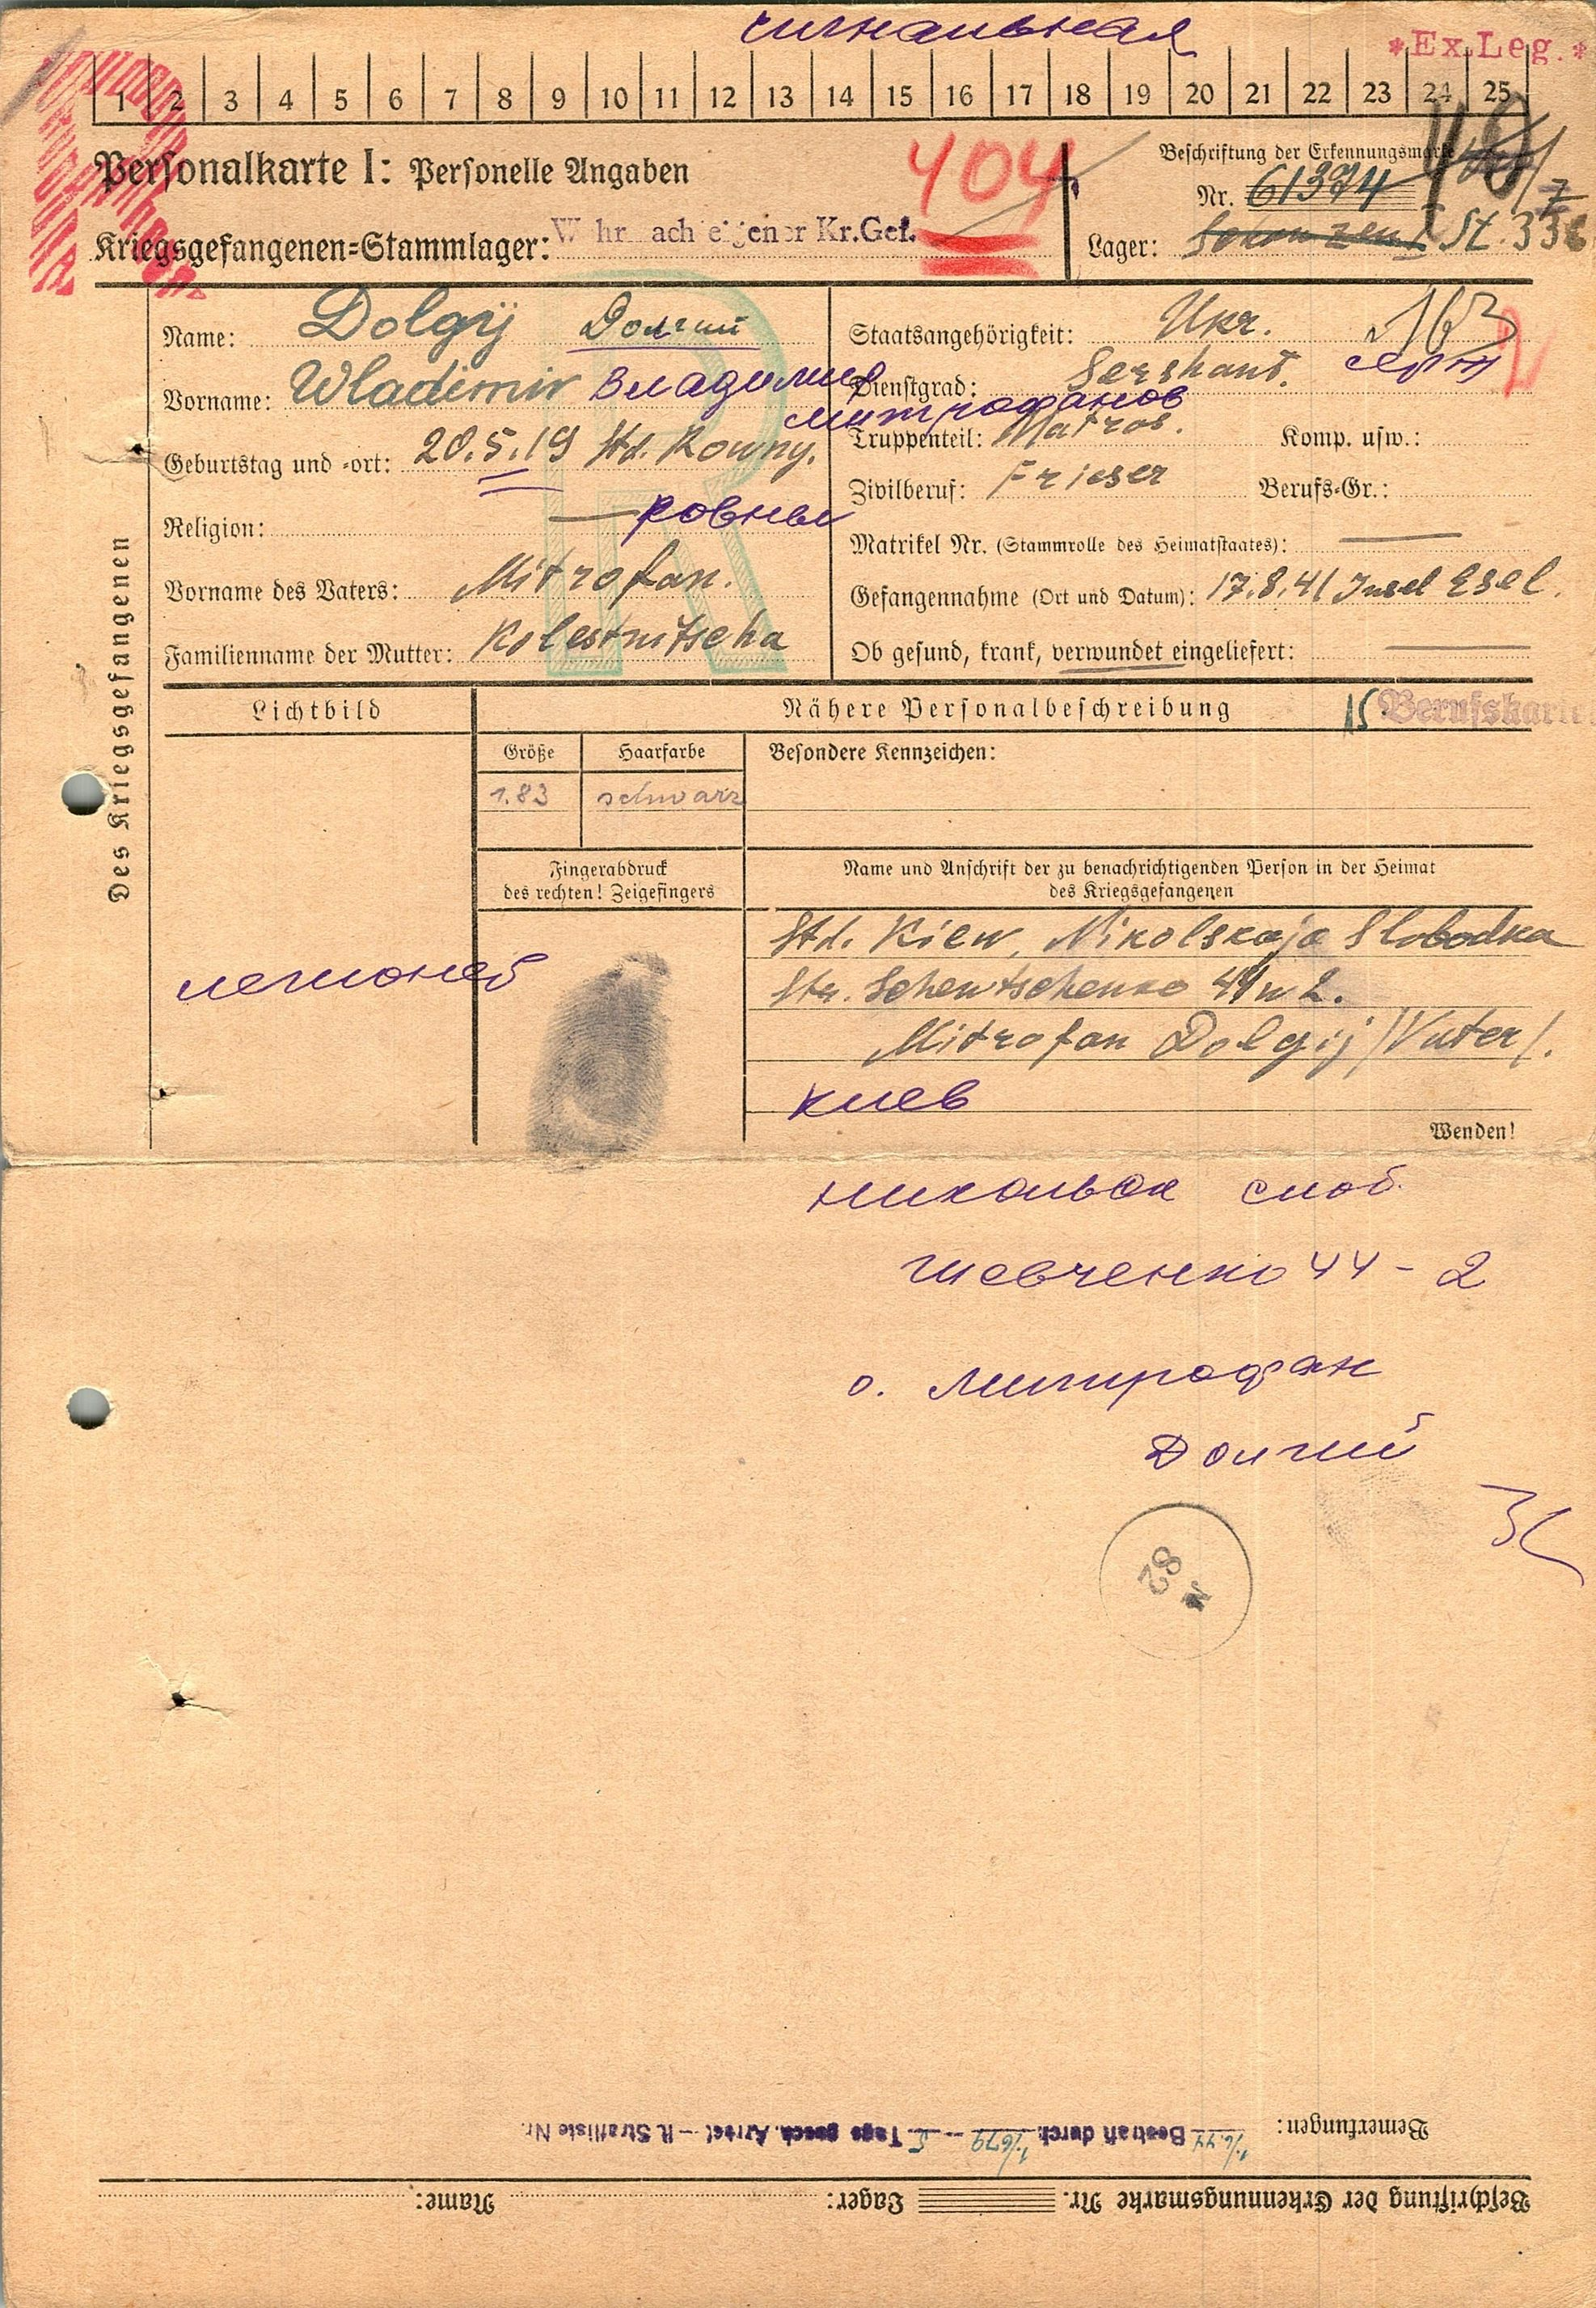 сигнальная
*Ex.Leg.*
1 2 3 4 5 6 7 8 9 10 11 12 13 14 15 16 17 18 19 20 21 22 23 24 25
Personalkarte I: Personelle Angaben
404
Beschriftung der Erkennungsmarke
Nr. 61374
Kriegsgefangenen-Stammlager: W hr ach eigener Kr.Gef.
Lager: St. 336
Des Kriegsgefangenen
Name: Dolgij Долгий
Vorname: Wladimir Владимир
Митрофанов
Geburtstag und -ort: 20.5.19 Std. Rowny.
Religion: — Ровны
Vorname des Vaters: Mitrofan.
Familienname der Mutter: Kolestnitscha
Staatsangehörigkeit: Ukr. 163
Dienstgrad: Sershant. серж
Truppenteil: Matros. Komp. usw.:
Zivilberuf: Frieser Berufs-Gr.:
Matrikel Nr. (Stammrolle des Heimatstaates): —
Gefangennahme (Ort und Datum): 17.8.41 Insel Esel.
Ob gesund, krank, verwundet eingeliefert: —
Lichtbild
Nähere Personalbeschreibung
15 Berufskarte
Größe
Haarfarbe
Besondere Kennzeichen:
1.83
schwarz
Fingerabdruck
des rechten! Zeigefingers
Name und Anschrift der zu benachrichtigenden Person in der Heimat
des Kriegsgefangenen
легионер
Std. Kiew, Nikolskaja Slobodka
Str. Schewtschenko 44 w 2.
Mitrofan Dolgij /Vater/.
Киев
Wenden!
Никольск слоб.
Шевченко 44 - 2
о. Митрофан
Долгий
N 82
Bemerkungen: Bestraft durch 1/679 — 5 Tage gesch. Arrest — lt. Strafliste Nr.
Beschriftung der Erkennungsmarke Nr. Lager: Name: